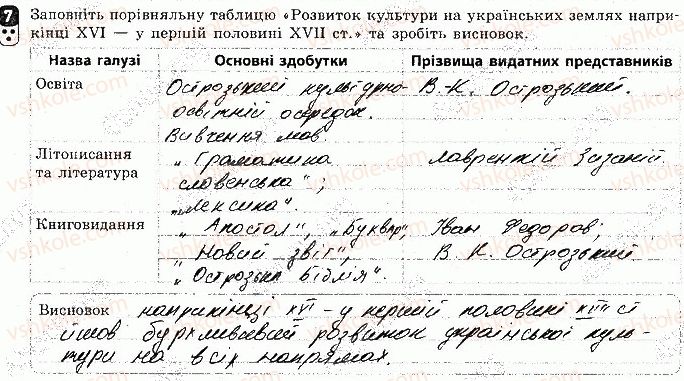 7 Заповніть порівняльну таблицю «Розвиток культури на українських землях напри-
кінці XVI — у першій половині XVII ст.» та зробіть висновок.
Назва галузі Основні здобутки Прізвища видатних представників
Освіта Острозький культурно- В.-К. Острозький.
освітній осередок.
Вивчення мов.
Літописання „Граматика Лаврентій Зизаній
та література словенська";
„Лексика".
Книговидання „Апостол", „Буквар", Іван Федоров;
„Новий звіт", В. К. Острозький
„Острозька біблія".
Висновок наприкінці XVI - у першій половині XVII ст
йшов бурхливий розвиток української куль-
тури на всіх напрямах.